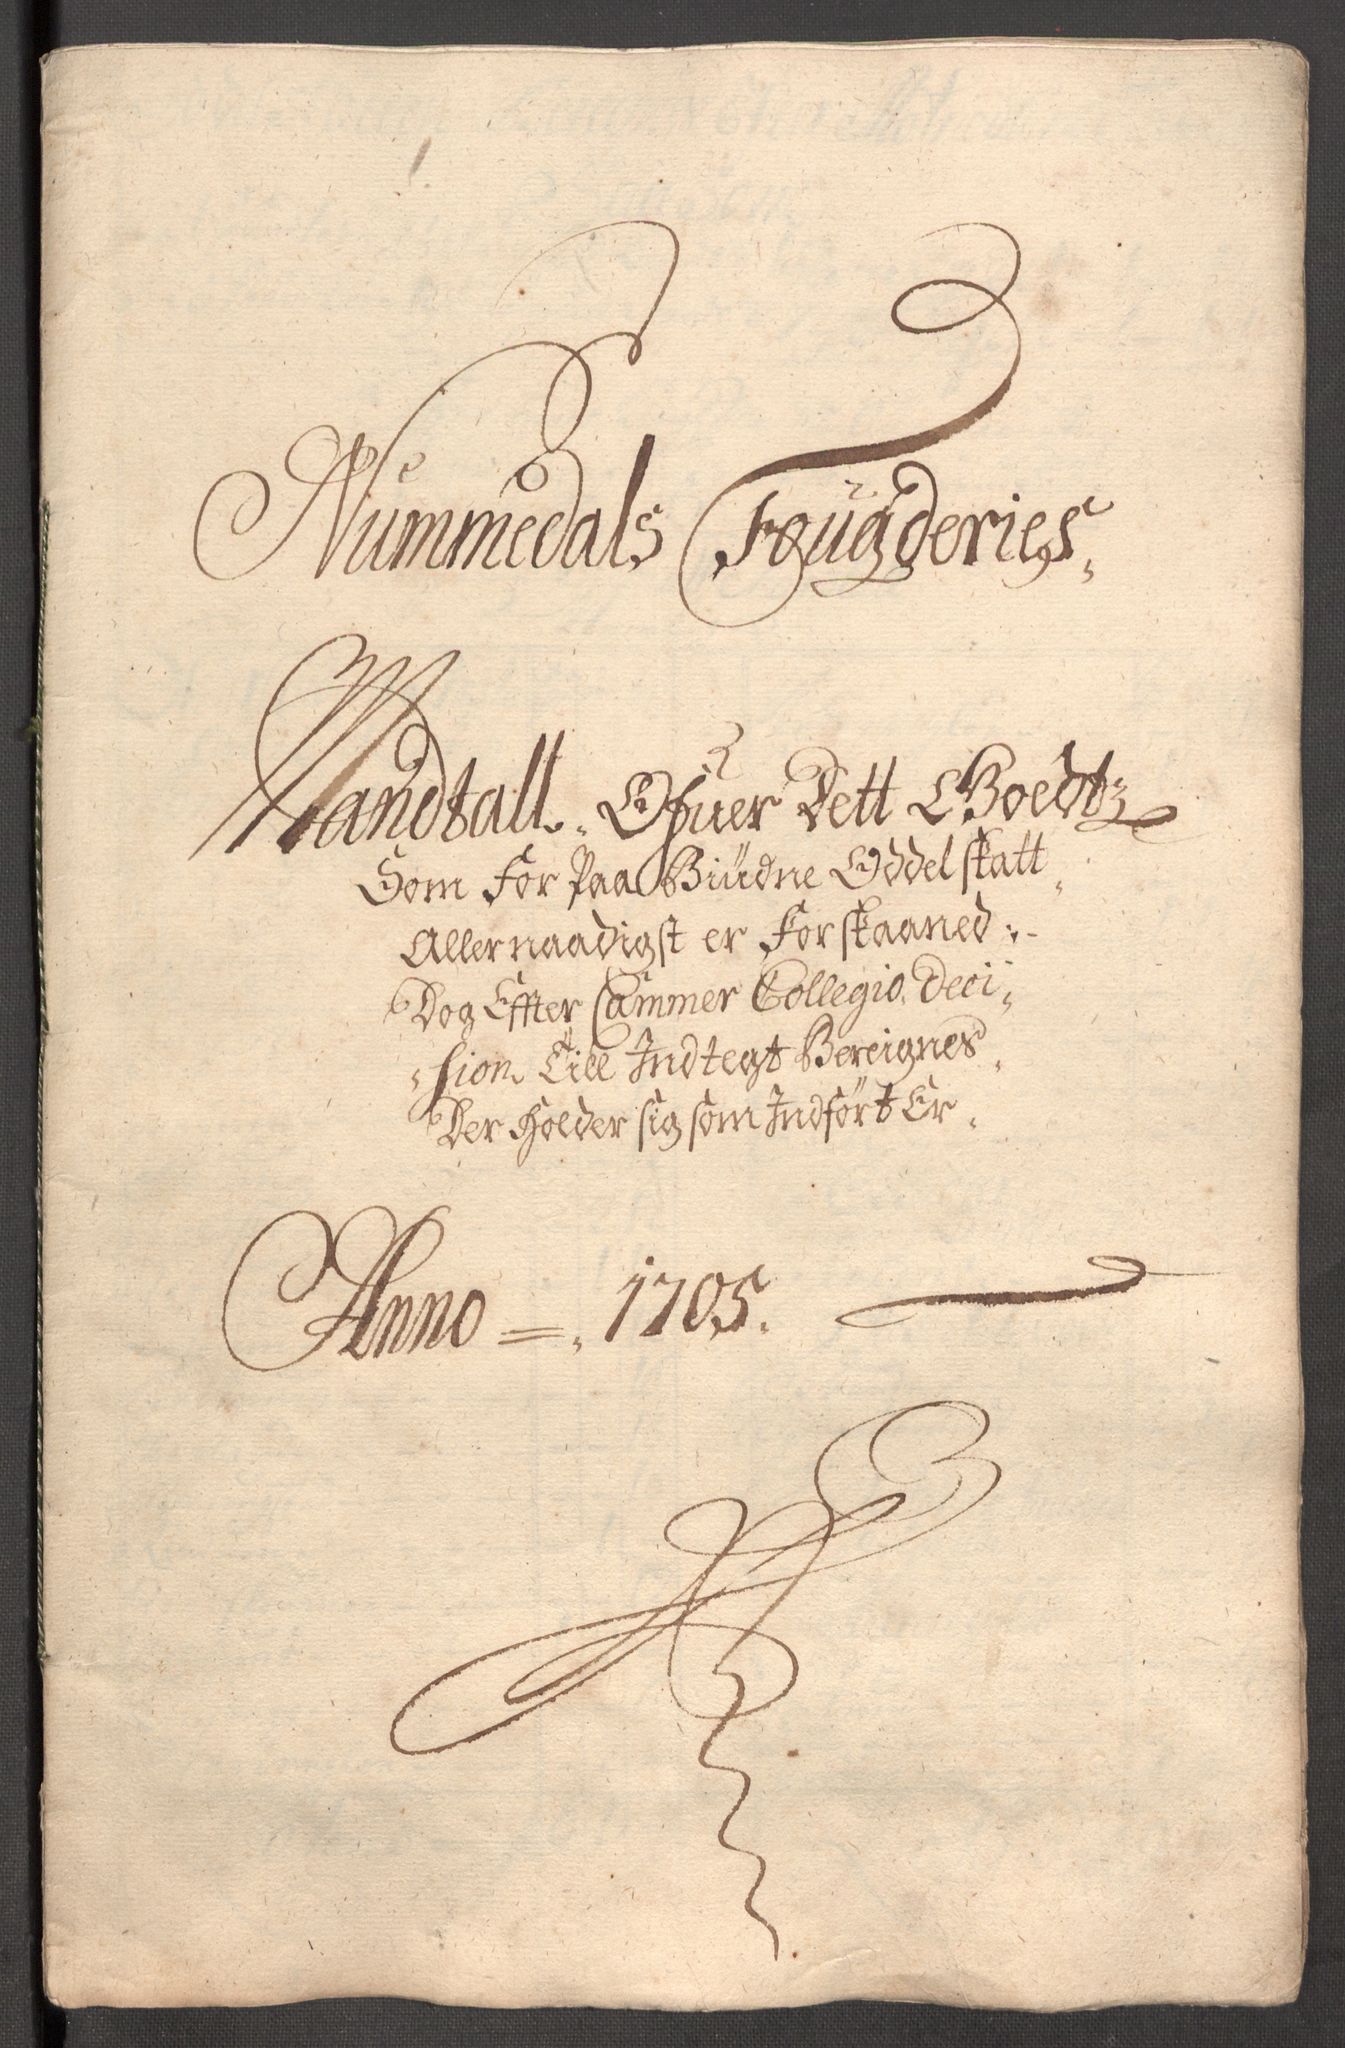 Nummedals Fougderies.
Mandtall. Ofuer Dett Goedtz
Som For Paa Biudne Oddel skatt,
Allernaadigst er Forskaaned :-
Dog Effter Cammer Collegio Deci,
,sion Till Indtegt Bereignes,
Der Holder sig som Indført Er,
Anno =, 1705.